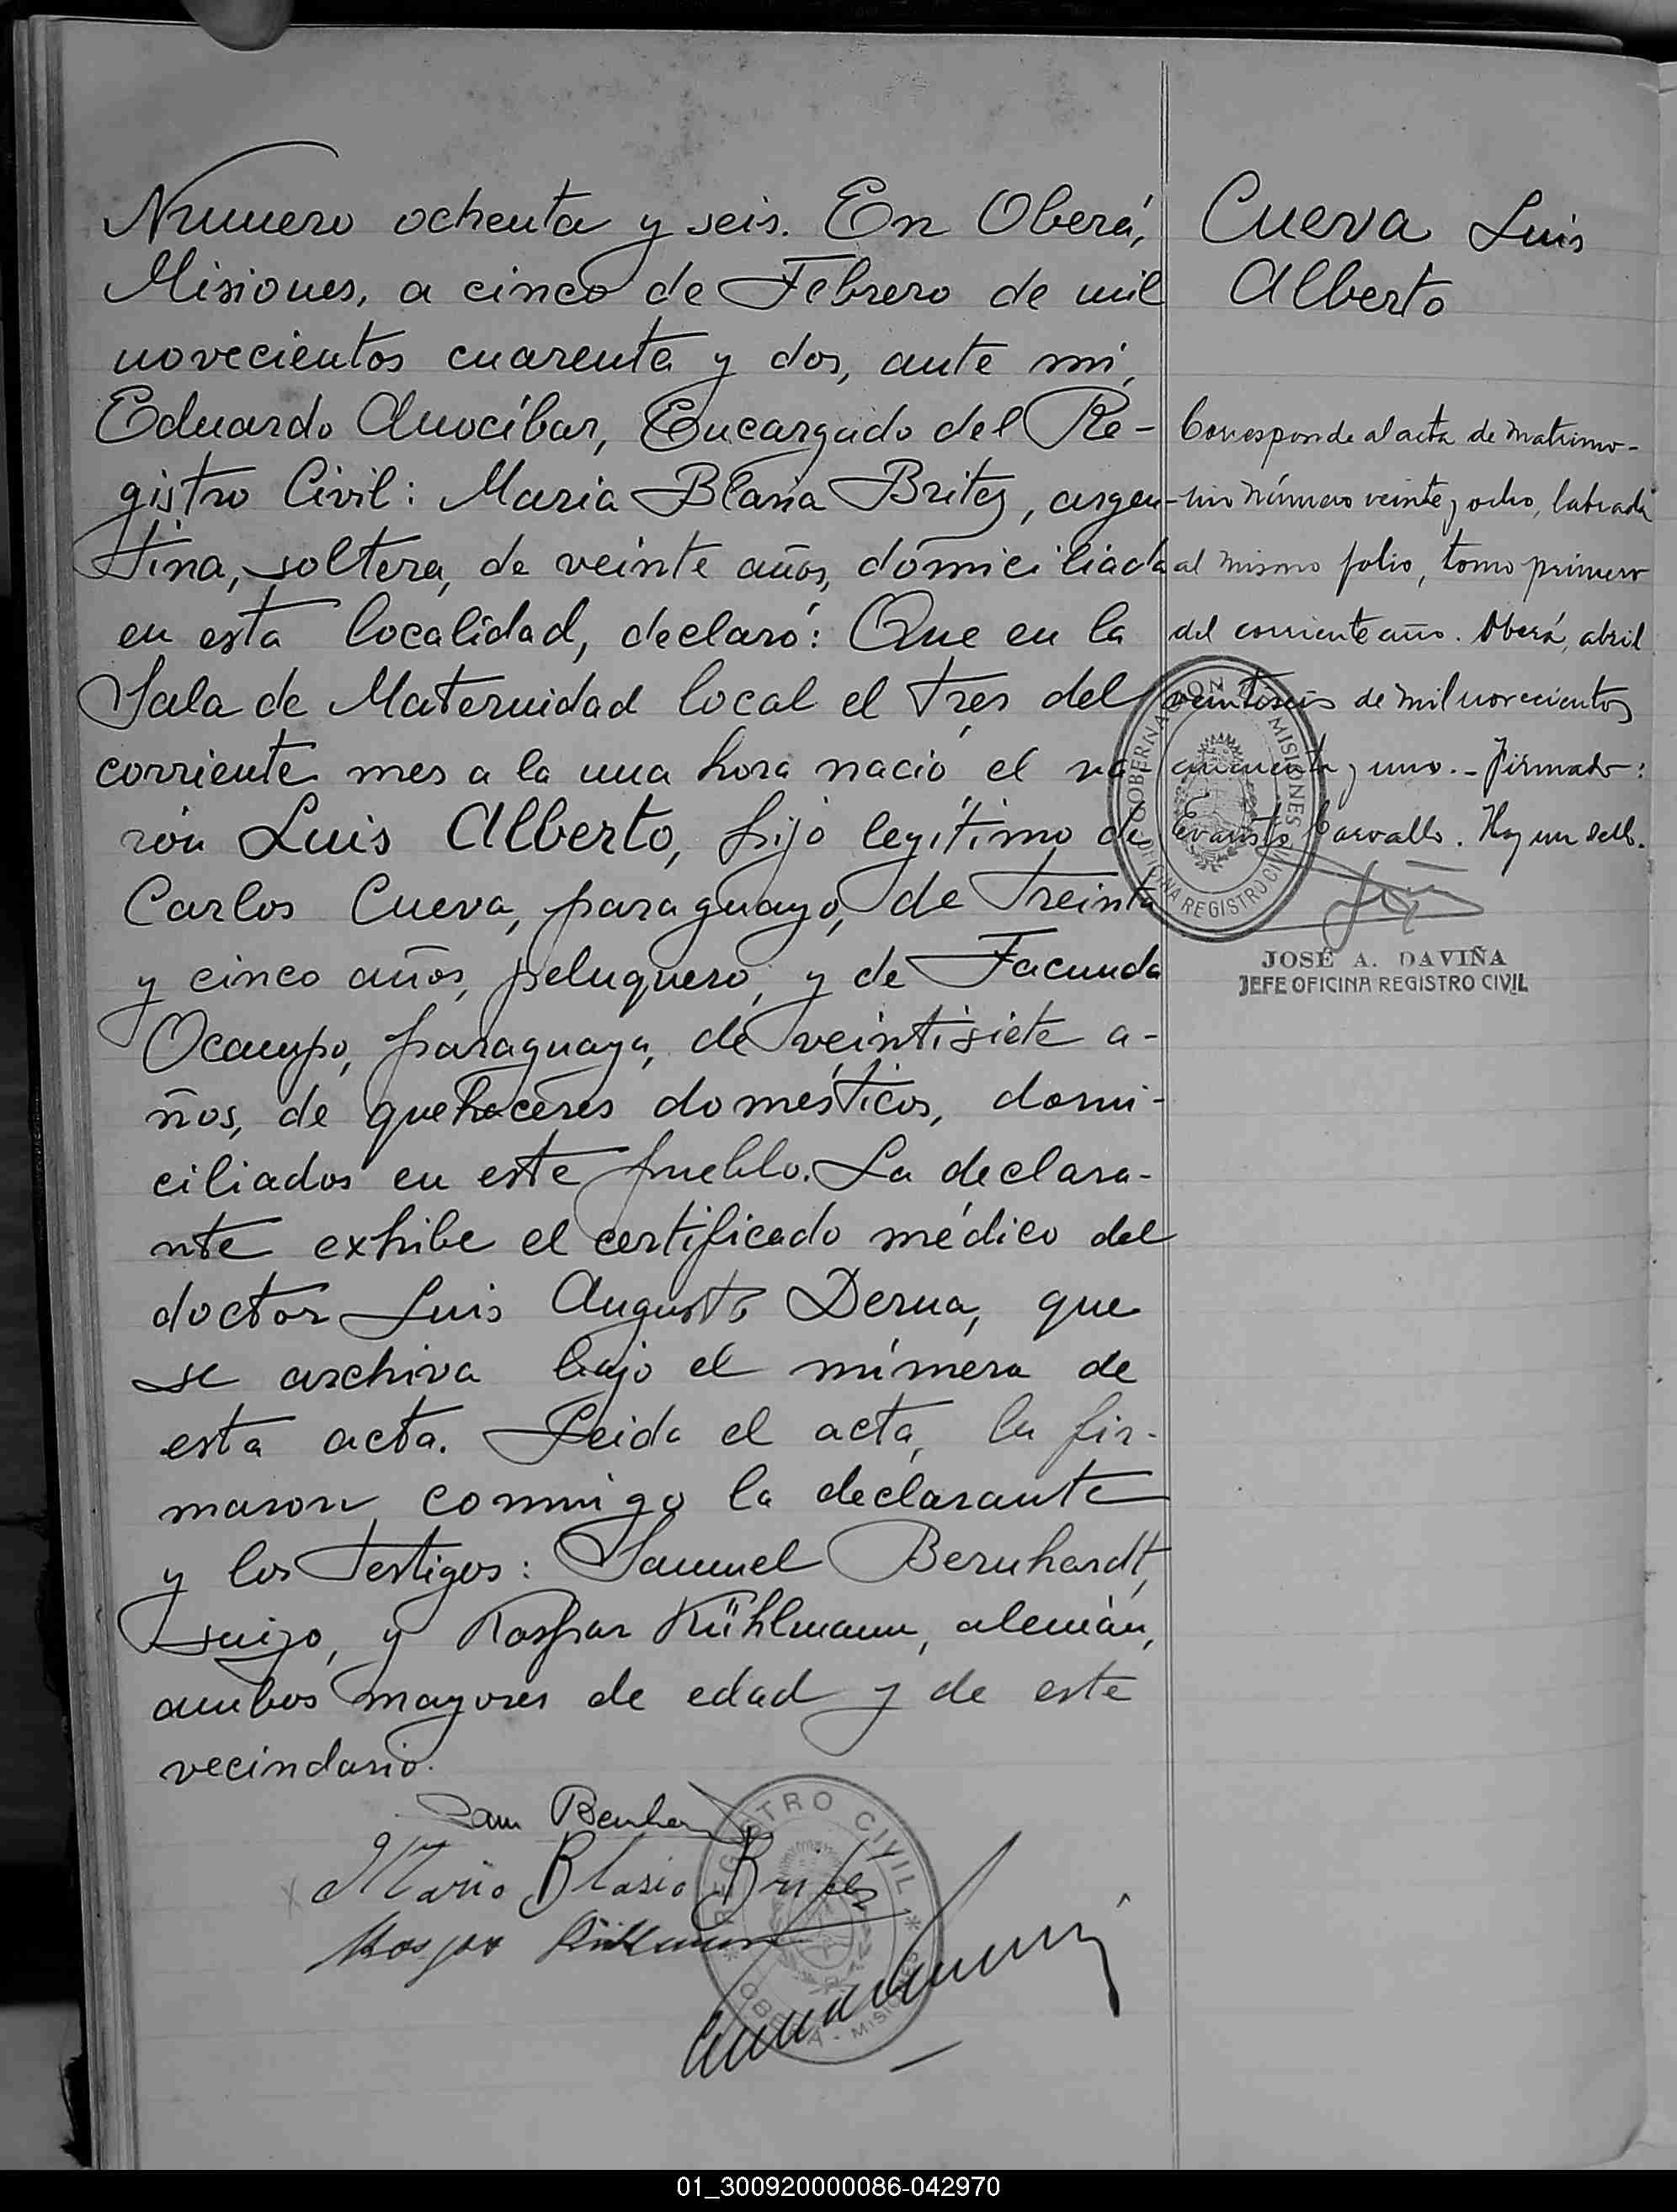 Numero ochenta y seis. En Oberá,
Misiones, a cinco de Febrero de mil
novecientos cuarenta y dos, ante mi,
Eduardo Anocíbar, Encargado del Re-
gistro Civil: Maria Blasia Britez, argen-
tina, soltera, de veinte años, domiciliada
en esta localidad, declaró: Que en la
Sala de Maternidad local el tres del
corriente mes a la una hora nació el va
rón Luis Alberto, hijo legítimo de
Carlos Cueva, paraguayo, de treinta
y cinco años, peluquero, y de Facunda
Ocampo, paraguaya, de veintisiete a-
ños, de quehaceres domésticos, domi-
ciliados en este pueblo. La declara-
nte exhibe el certificado médico del
doctor Luis Augusto Derna, que
se archiva bajo el número de
esta acta. Leida el acta, la fir-
maron conmigo la declarante
y los testigos: Samuel Bernhardt,
suizo, y Kaspar Kühlmann, alemán,
ambos mayores de edad y de este
vecindario.
Sam Bernha
Maria Blasia Britez
Kaspar Kühlmann
REGISTRO CIVIL
OBERA - MISIONES
Cueva Luis
Alberto
Corresponde al acta de matrimo-
nio número veinte y ocho, labrada
al mismo folio, tomo primero
del corriente año. Oberá, abril
veintiseis de mil novecientos
cincuenta y uno.- Firmado:
Evaristo Carvallo. Hay un sello.
GOBERNACION DE MISIONES
OFICINA REGISTRO CIVIL
JOSÉ A. DAVIÑA
JEFE OFICINA REGISTRO CIVIL
01_300920000086-042970